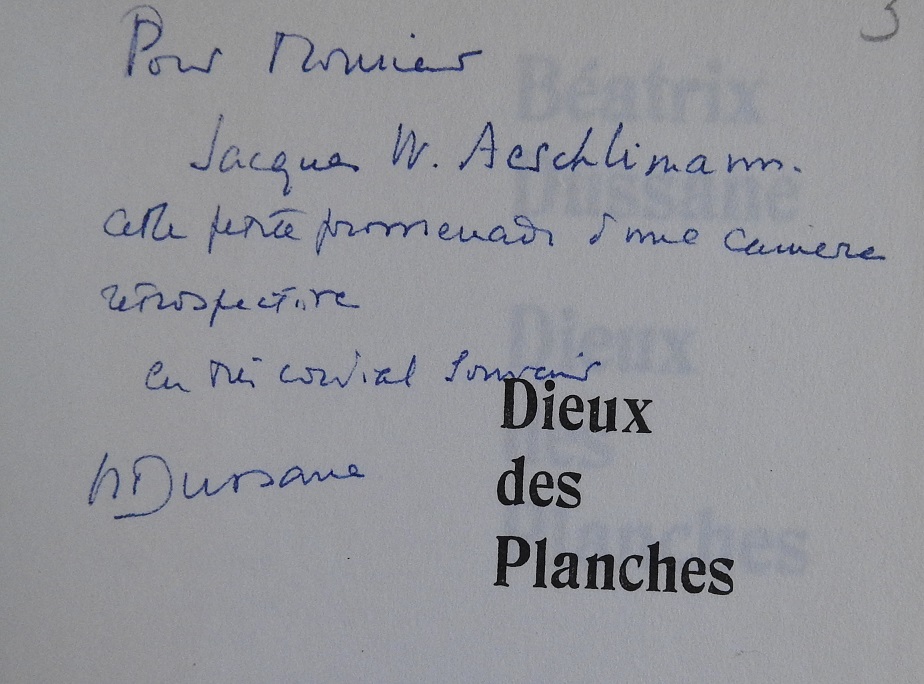 3
Pour Monsieur
Jacques W. Aeschlimann.
cette petite promenade d'une caméra
rétrospective
en très cordial souvenir
Dussane
Dieux
des
Planches
Béatrix
Dussane
Dieux
des
Planches